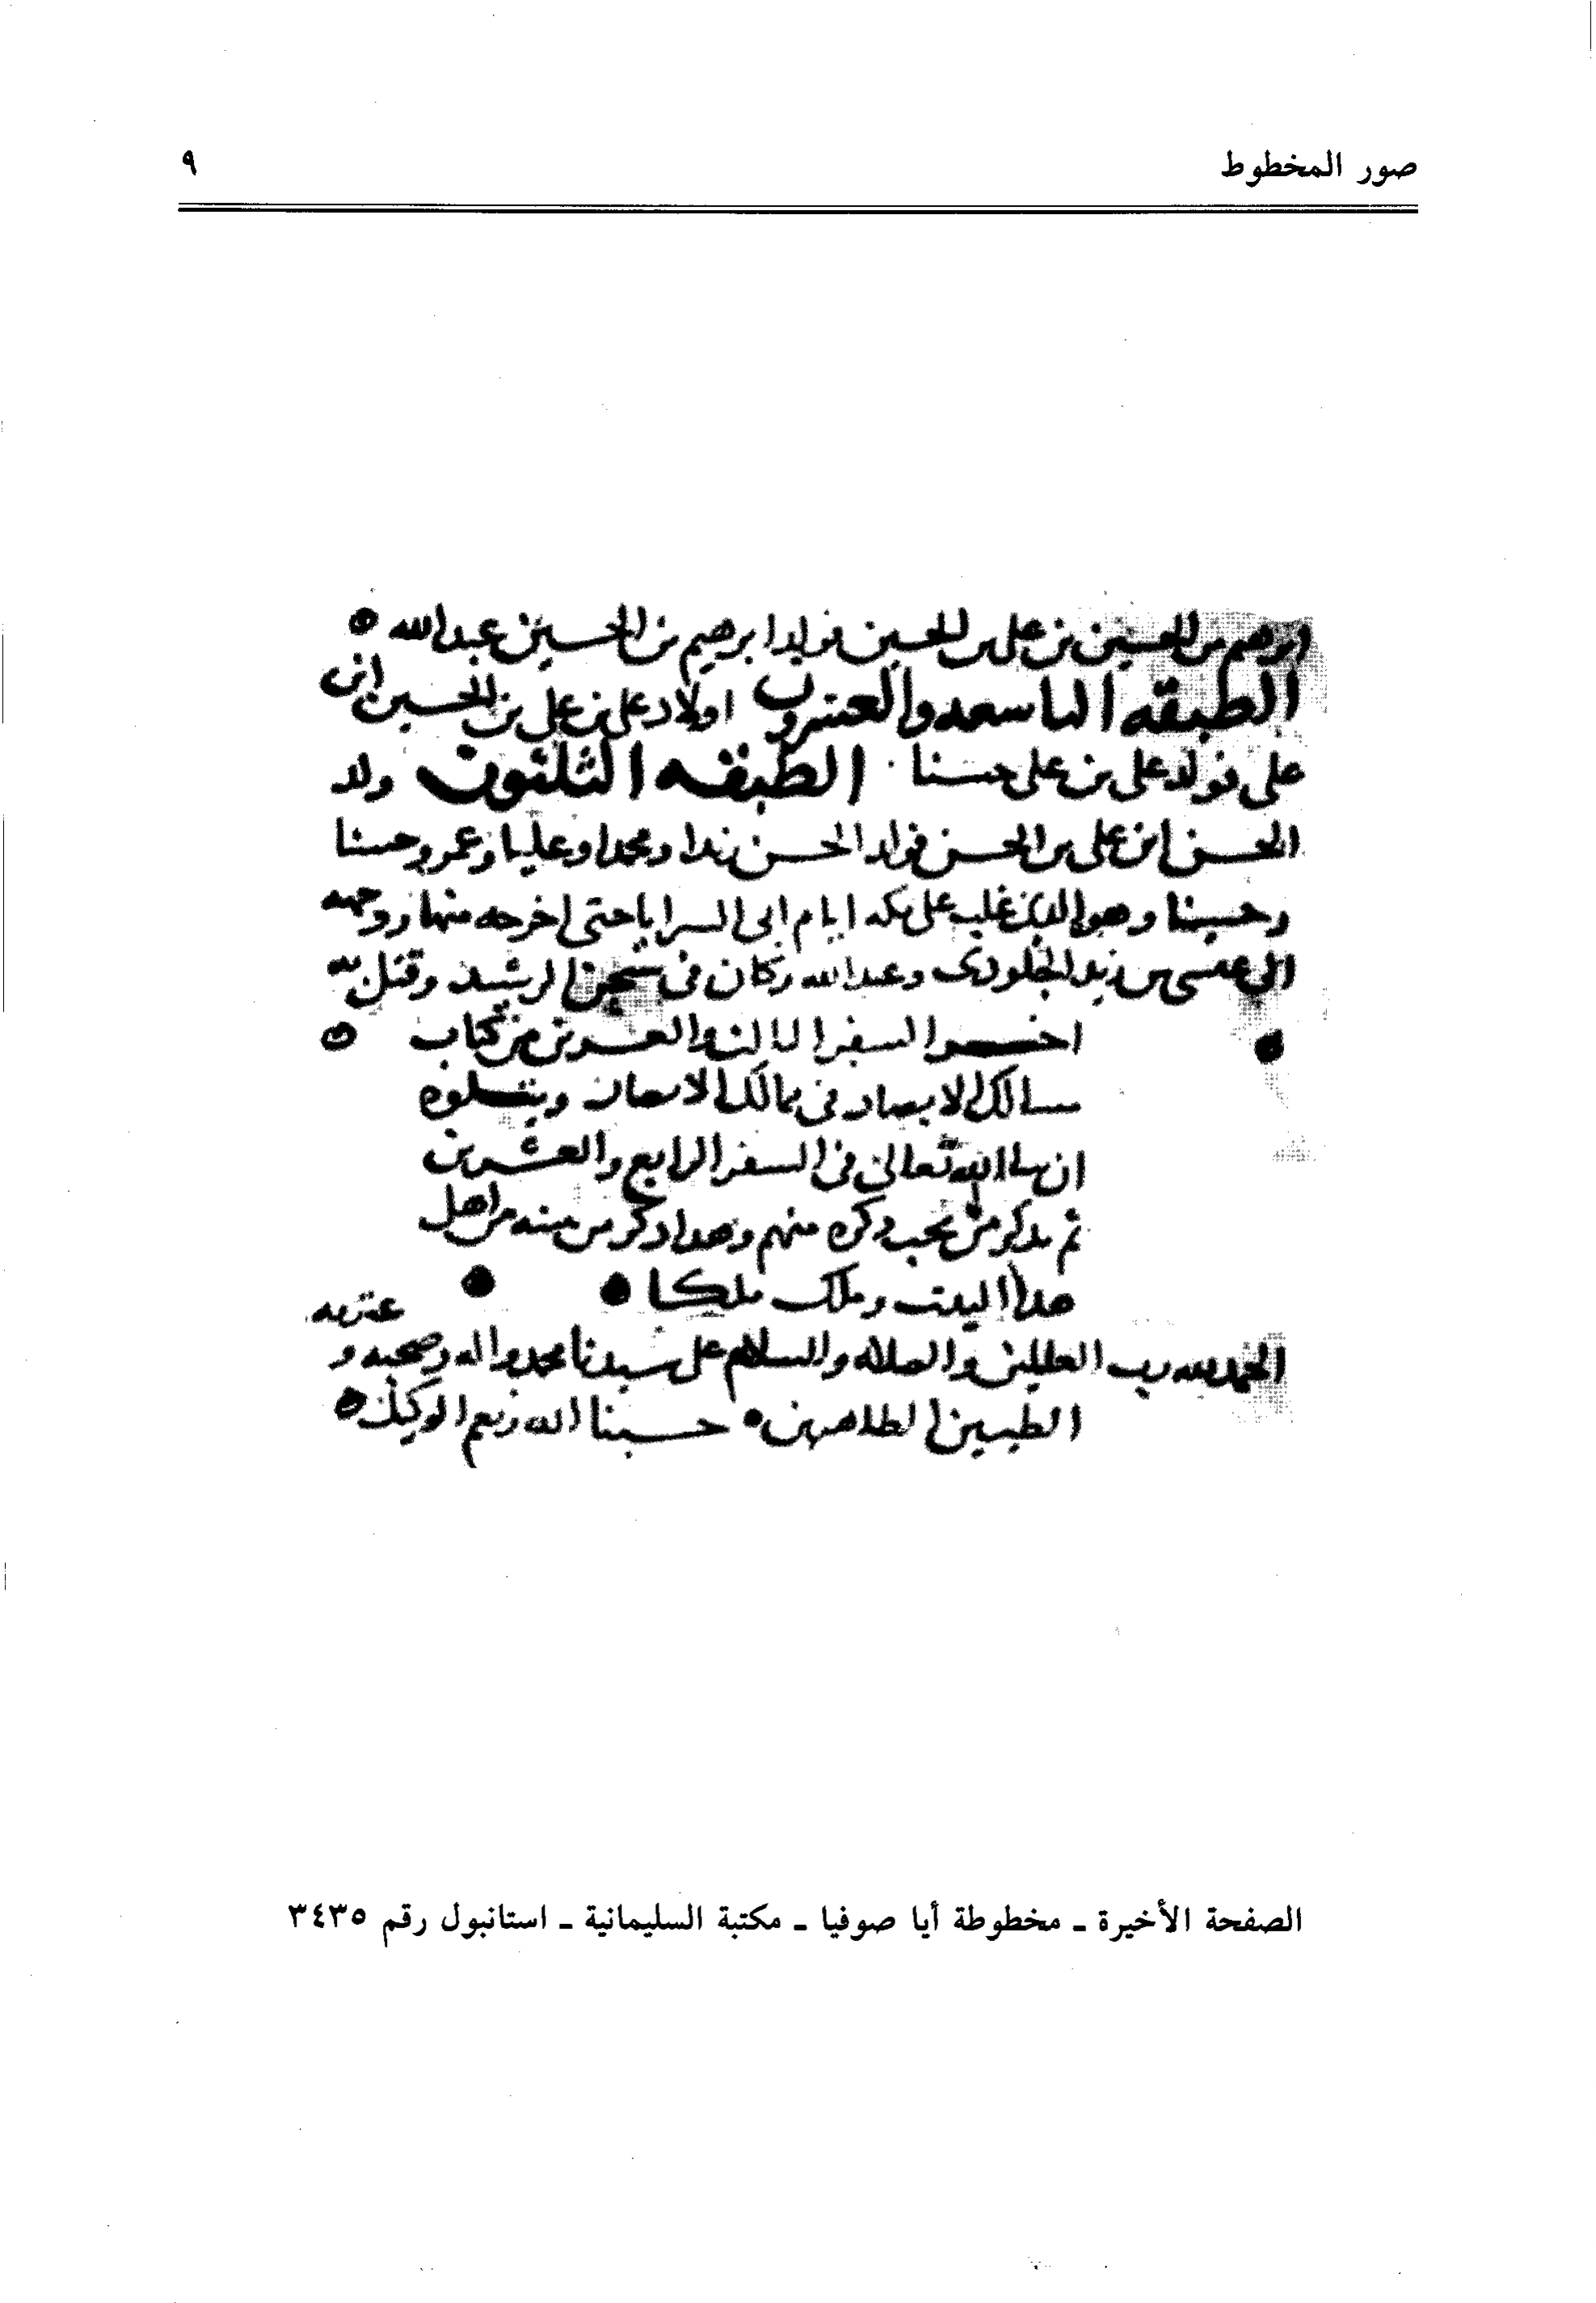 صور المخطوط
٩
ابرهيم بن الحسين بن على بن الحسين فولد ابرهيم بن الحسين عبد الله
الطبقه التاسعه والعشرون اولاد على بن على بن الحسين ابن
على فولد على بن على حسنا الطبقه الثلثون ولد
الحسن ابن على بن الحسن فولد الحسن زيدا ومحمدا وعليا وعمر وحسنا
وحسينا وهو الذى غلب على مكه ايام ابى السرايا حتى اخرجه منها ووجهه
الى عيسى بن زيد الجلودى وعبد الله وكان فى سجن الرشيد وقتل
اخر السفر الثالث والعشرين من كتاب
مسالك الابصار فى ممالك الامصار ويتلوه
ان شا الله تعالى فى السفر الرابع والعشرين
ثم نذكر من يجب ذكره منهم وهذا ذكر من منه من اهل
هذا البيت وملك ملكا
عترته
الحمد لله رب العلمين والصلاه والسلام على سيدنا محمد واله وصحبه و
الطيبين الطاهرين حسبنا الله ونعم الوكيل
الصفحة الأخيرة - مخطوطة أيا صوفيا - مكتبة السليمانية - استانبول رقم ٣٤٣٥